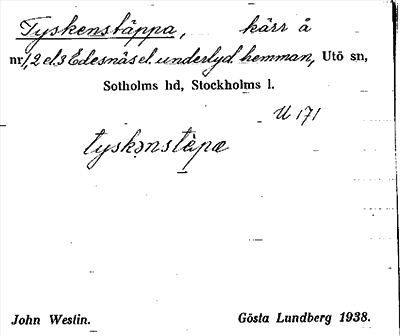 Tyskenstäppa, kärr å
nr 1, 2 el. 3 Edesnäs el. underlyd. hemman, Utö sn,
Sotholms hd, Stockholms l.
U 171
tyskənstäpa
John Westin. Gösta Lundberg 1938.